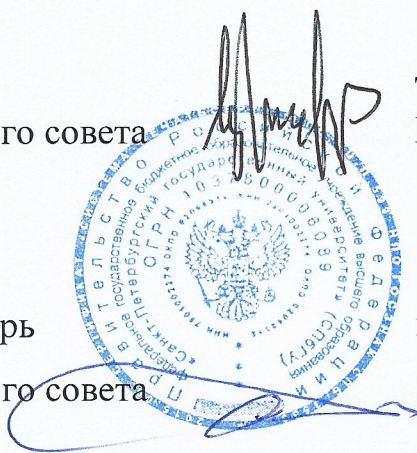 го совета
рь
го совета
Правительство Российской Федерации
федеральное государственное бюджетное образовательное учреждение высшего образования
«Санкт-Петербургский государственный университет» (СПбГУ)
ОГРН 1037800006089